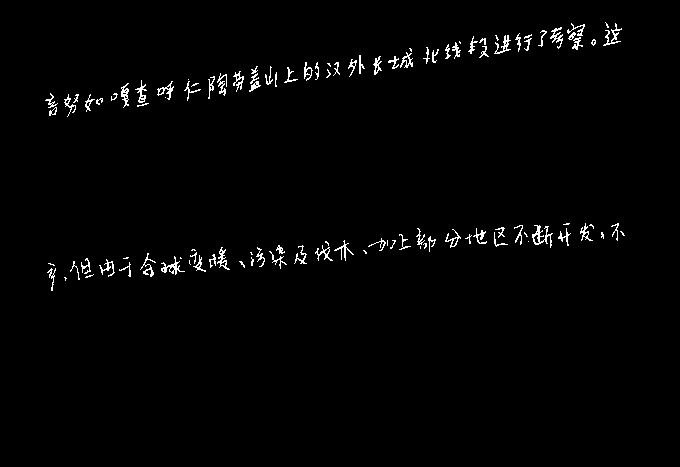 音努如嘎查呼仁陶劳盖山上的汉外长城北线段进行了考察。这
彦,但由于全球变暖、污染及伐木、加上部分地区不断开发,不